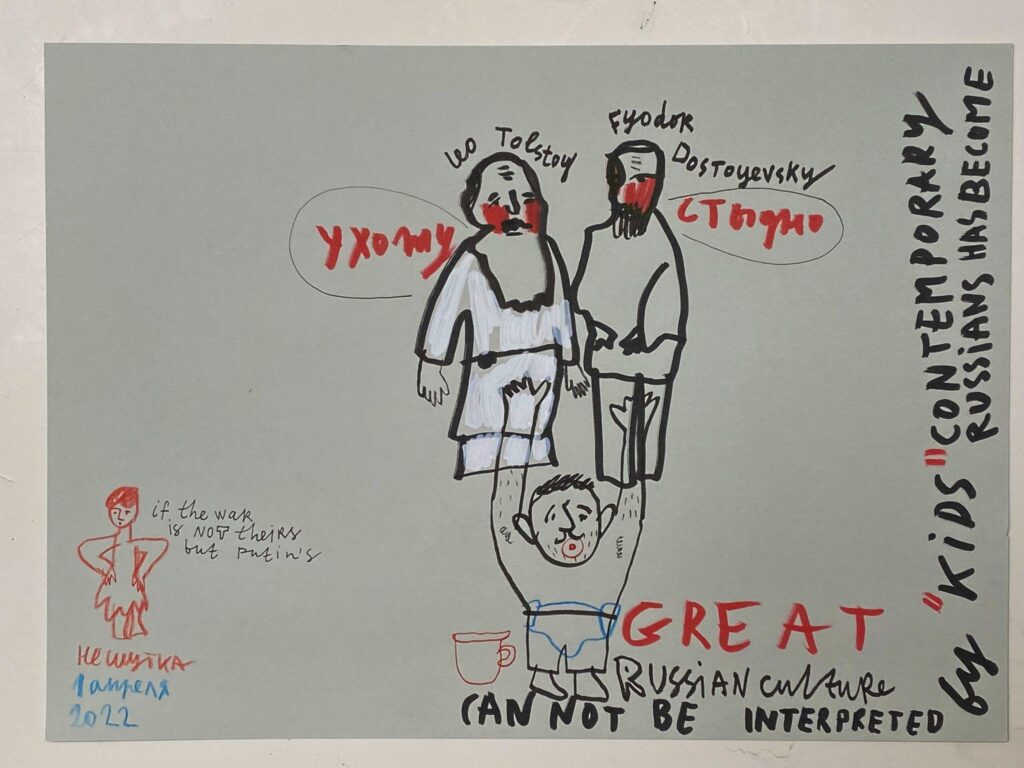 Leo Tolstoy
Fyodor
Dostoyevsky
Ухожу
стыдно
if the war
is NOT theirs
but putin's
не шутка
1 апреля
2022
GREAT
RUSSIAN culture
CAN NOT BE INTERPRETED
by "KiDS" CONTEMPORARY
RUSSIANS HAS BECOME